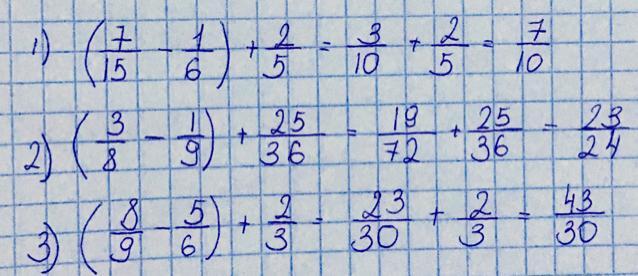 1) (7/15 - 1/6) + 2/5 = 3/10 + 2/5 = 7/10
2) (3/8 - 1/9) + 25/36 = 19/72 + 25/36 = 23/24
3) (8/9 - 5/6) + 2/3 = 23/30 + 2/3 = 43/30